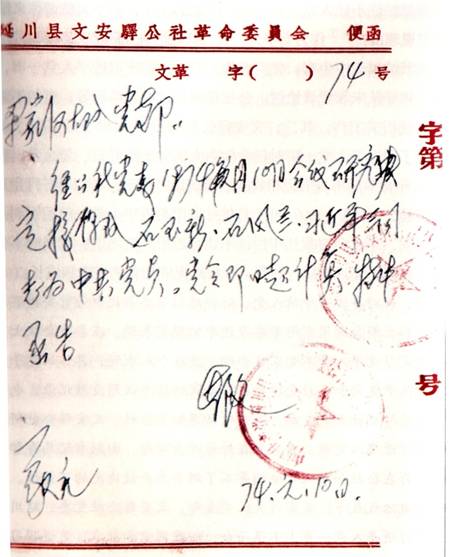 延川县文安驿公社革命委員会 便函
文革 字( ) 74号
梁家河大队党支部:
经公社党委1974年元月10日会议研究决
定接收 石玉新、石凤兰、习近平 同
志为中共党员。党令即日起计算。特此
函告
致礼
74.元.10日.
字第
号